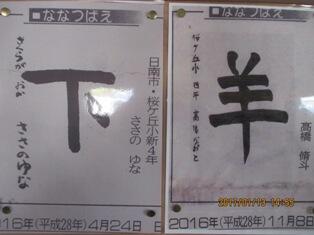 ■ななつばえ
下
さくらがおか
ささのゆな
日南市・桜ケ丘小新4年
ささの ゆな
16年(平成28年)4月24日
■ななつばえ
羊
桜ケ丘小 四年
高橋 脩斗
2016年(平成28年)11月8日
2017/01/13 14:55